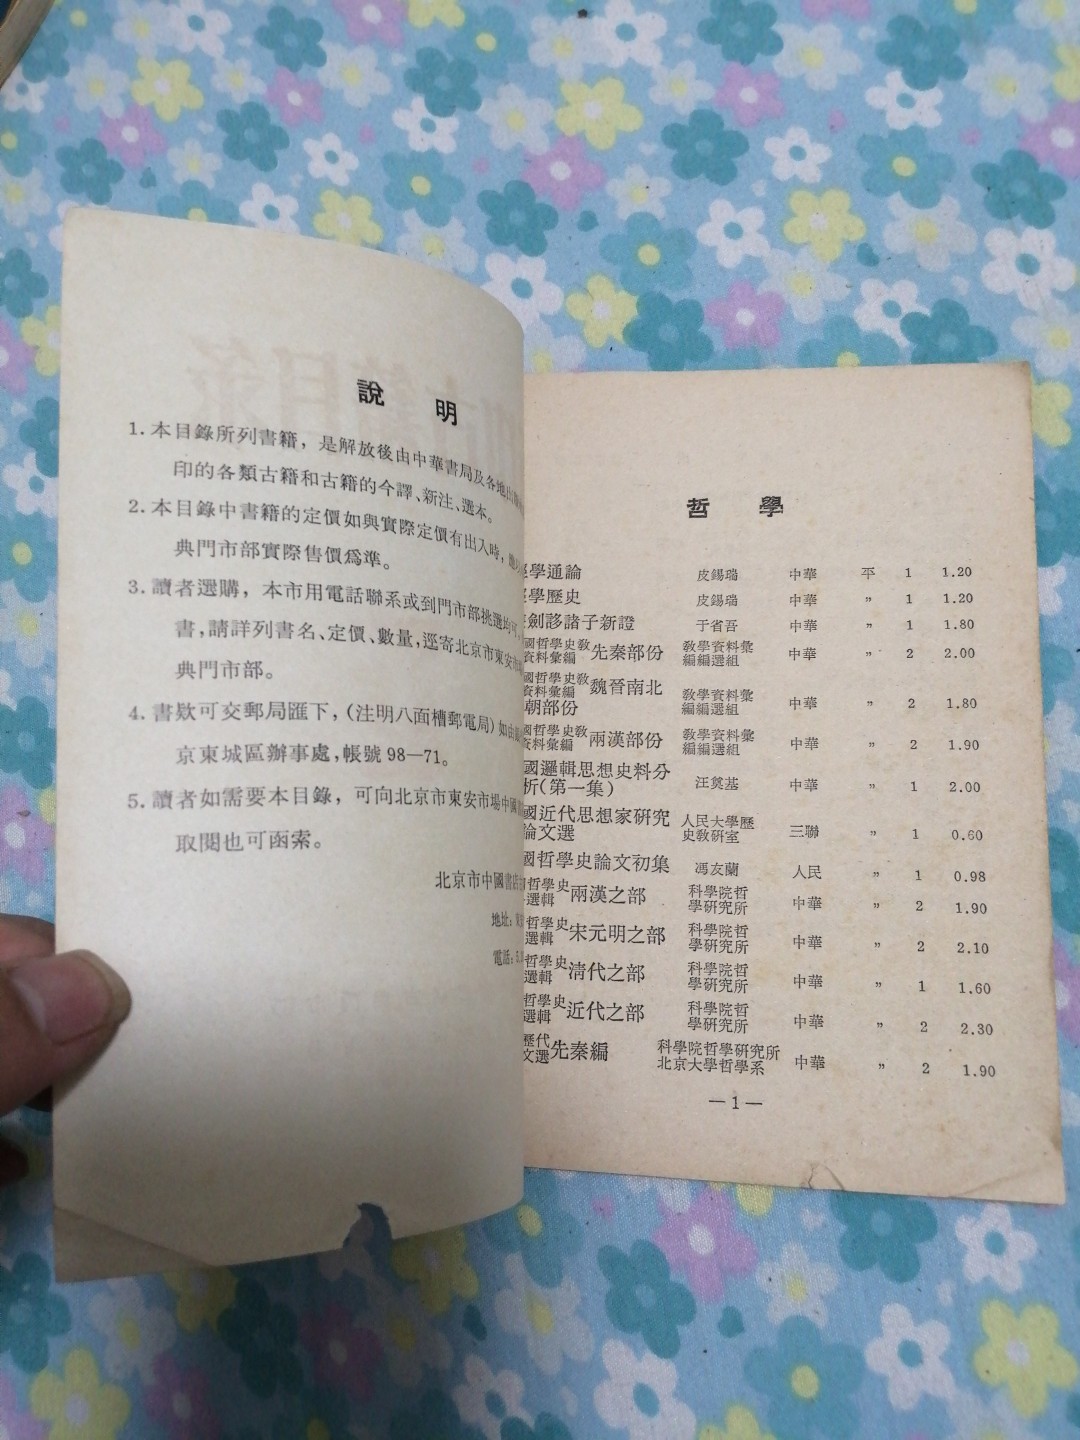 說 明
1. 本目錄所列書籍，是解放後由中華書局及各地出
印的各類古籍和古籍的今譯、新注、選本。
2. 本目錄中書籍的定價如與實際定價有出入時，
典門市部實際售價爲準。
3. 讀者選購，本市用電話聯系或到門市部挑選均可，
書，請詳列書名、定價、數量，逕寄北京市東安市
典門市部。
4. 書欵可交郵局匯下，(注明八面槽郵電局) 如
京東城區辦事處，帳號 98—71。
5. 讀者如需要本目錄，可向北京市東安市場中國
取閱也可函索。
北京市中國書店
地址：
電話：
哲 學
學通論 皮錫瑞 中華 平 1 1.20
學歷史 皮錫瑞 中華 〃 1 1.20
劍誃諸子新證 于省吾 中華 〃 1 1.80
國哲學史敎資料彙編 先秦部份 敎學資料彙編編選組 中華 〃 2 2.00
國哲學史敎資料彙編 魏晉南北朝部份 敎學資料彙編編選組 中華 〃 2 1.80
國哲學史敎資料彙編 兩漢部份 敎學資料彙編編選組 中華 〃 2 1.90
國邏輯思想史料分
析(第一集) 汪奠基 中華 〃 1 2.00
國近代思想家硏究
論文選 人民大學歷史敎硏室 三聯 〃 1 0.60
國哲學史論文初集 馮友蘭 人民 〃 1 0.98
哲學史選輯 兩漢之部 科學院哲學硏究所 中華 〃 2 1.90
哲學史選輯 宋元明之部 科學院哲學硏究所 中華 〃 2 2.10
哲學史選輯 淸代之部 科學院哲學硏究所 中華 〃 1 1.60
哲學史選輯 近代之部 科學院哲學硏究所 中華 〃 2 2.30
歷代文選 先秦編 科學院哲學硏究所 北京大學哲學系 中華 〃 2 1.90
— 1 —